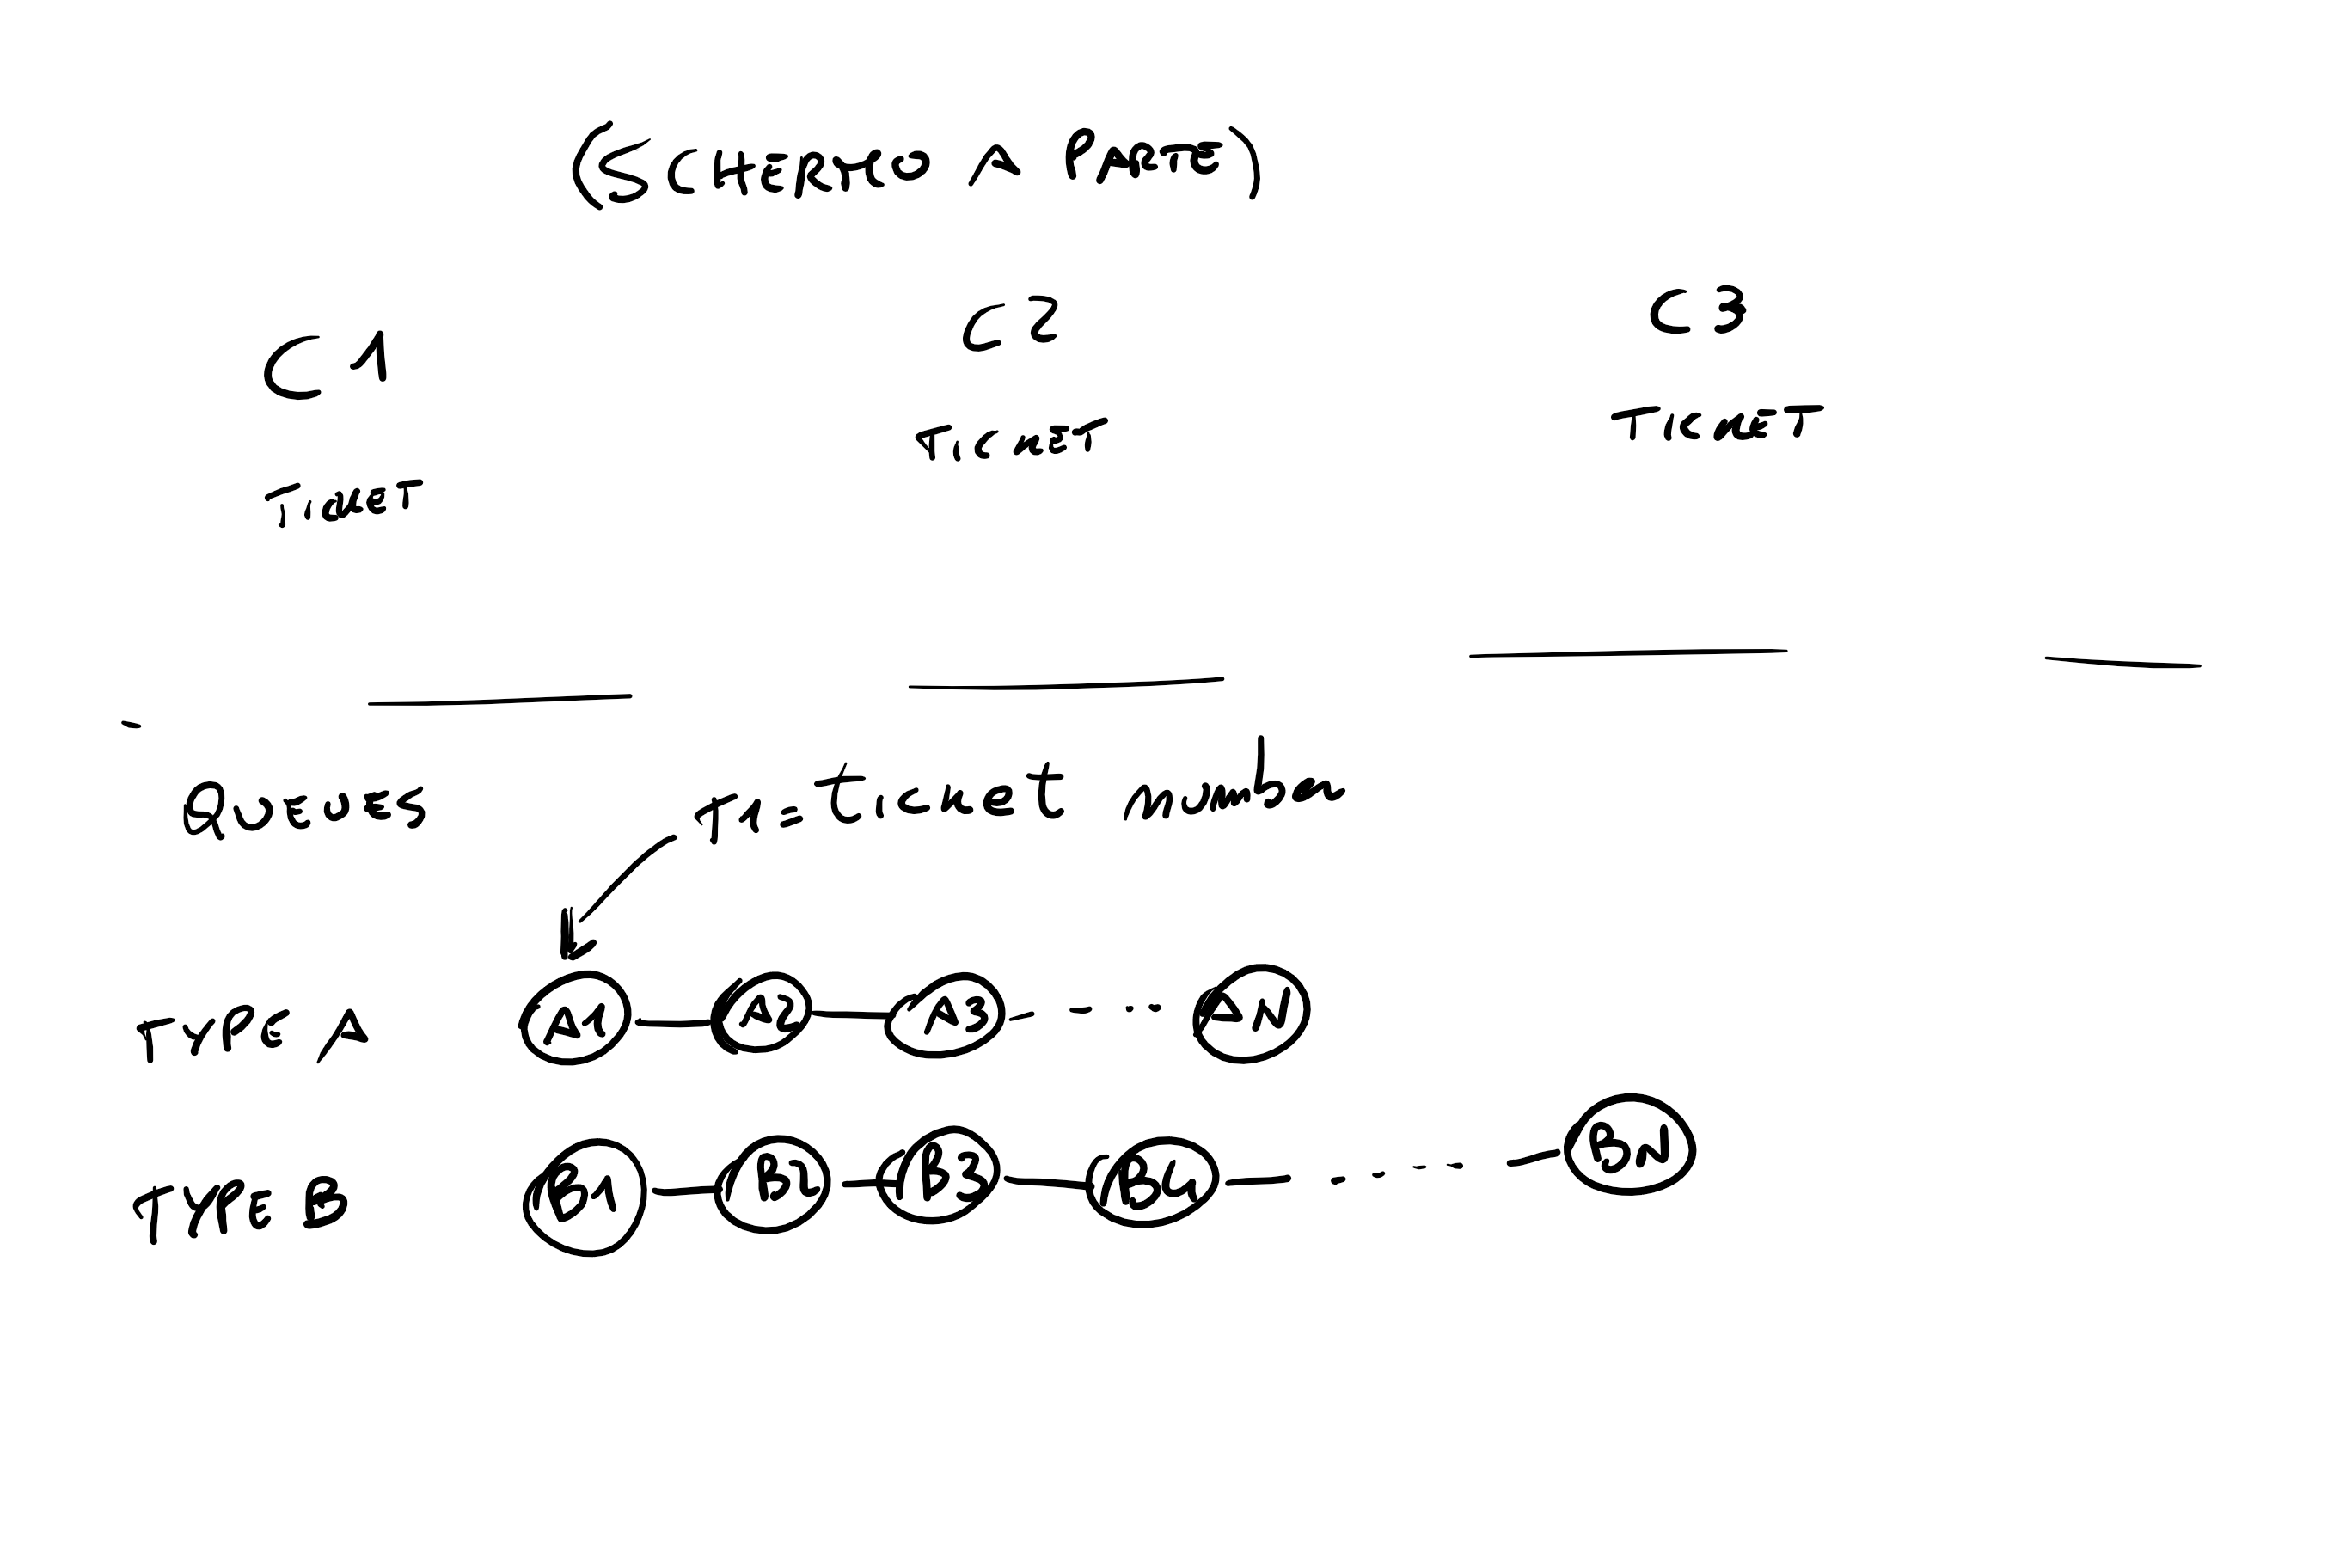 (SCHERMO A PARTE)
C1 C2 C3
TICKET TICKET TICKET
QUEUES
TN = ticket number
TYPE A A1 A2 A3 AN
TYPE B B1 B2 B3 B4 BN